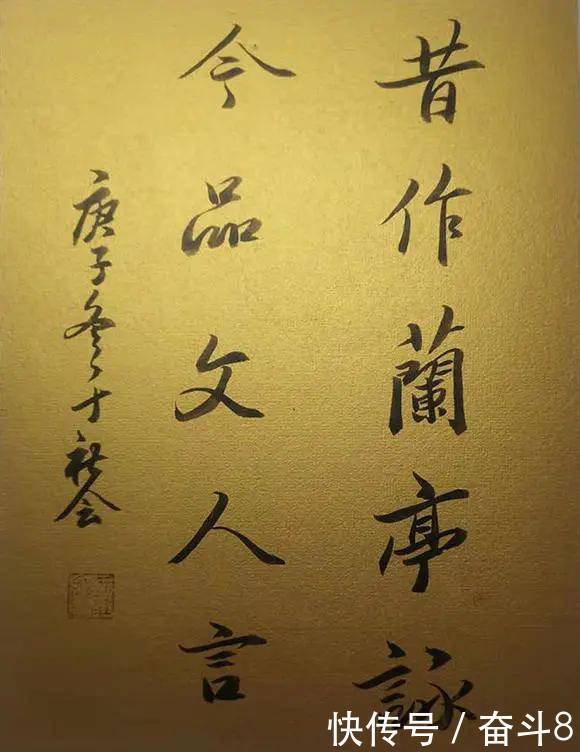 昔作蘭亭詠
今品文人言
庚子冬十社会
快传号 / 奋斗8